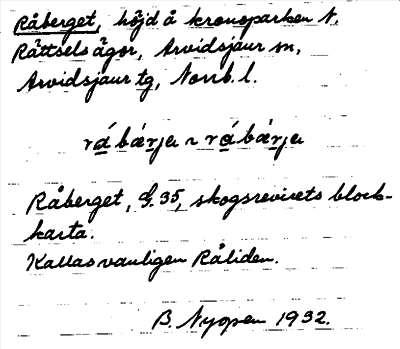 Råberget, höjd å kronoparken N.
Råttsels ägor, Arvidsjaur sn,
Arvidsjaur tg, Norrb. l.
råbærjeŋ ~ råbærjeŋ
Råberget, G.35, skogsrevirets block-
karta.
Kallas vanligen Råliden.
B. Nyopen 1932.